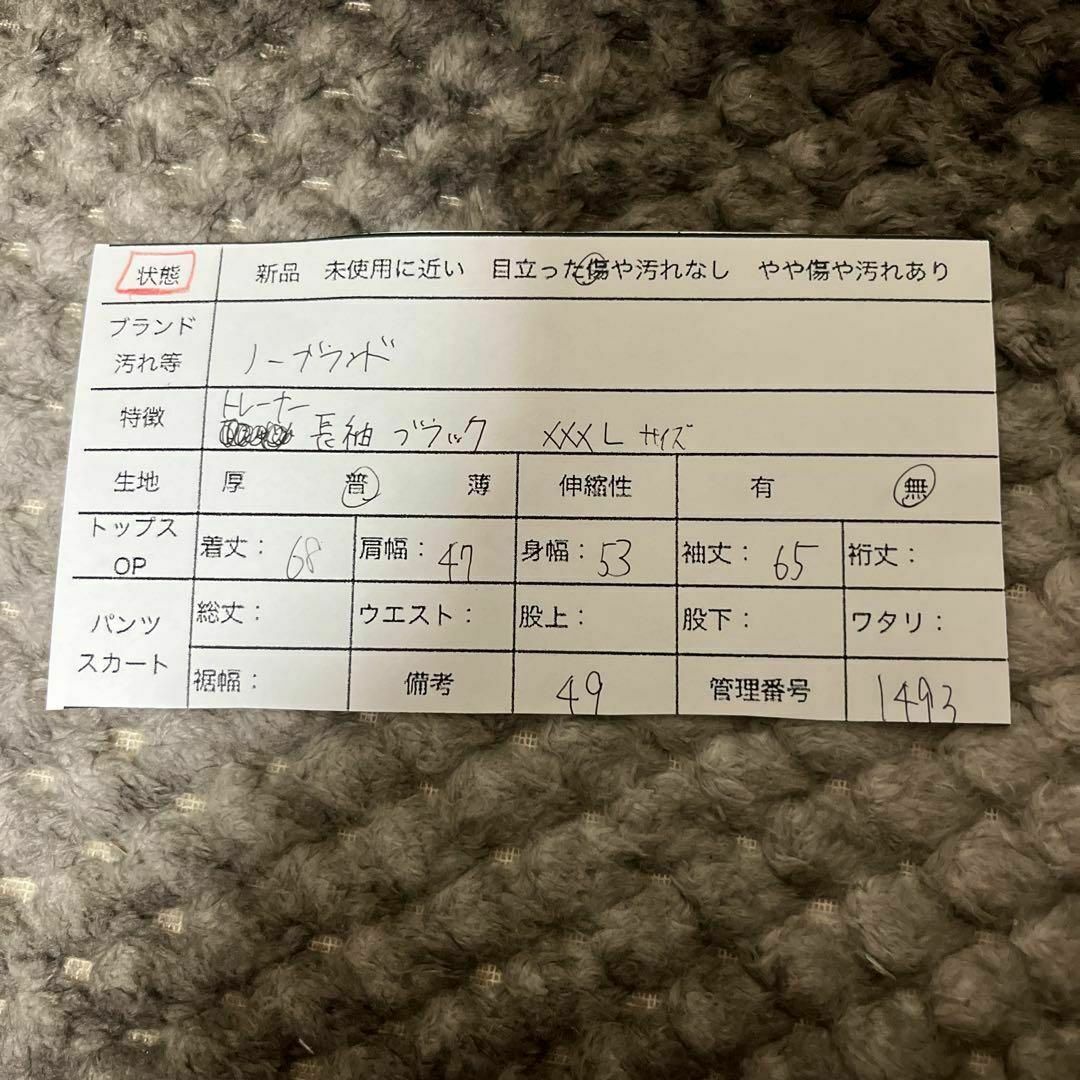 状態 新品 未使用に近い 目立った傷や汚れなし やや傷や汚れあり
ブランド
汚れ等 ノーブランド
トレーナー
特徴 長袖 ブラック XXXL サイズ
生地 厚 普 薄 伸縮性 有 無
トップス
OP 着丈: 68 肩幅: 47 身幅: 53 袖丈: 65 裄丈:
パンツ
スカート
総丈: ウエスト: 股上: 股下: ワタリ:
裾幅: 備考 49 管理番号 1493